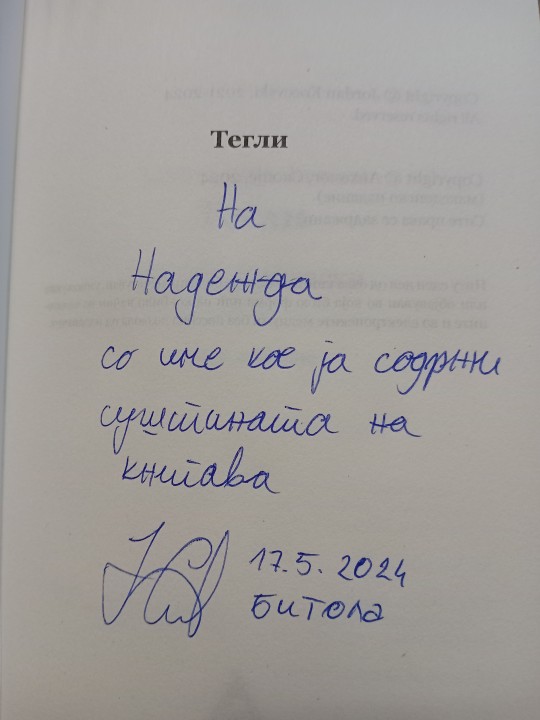 Тегли
На
Надежда
со име кое ја содржи
суштината на
книгава
17.5.2024
Битола